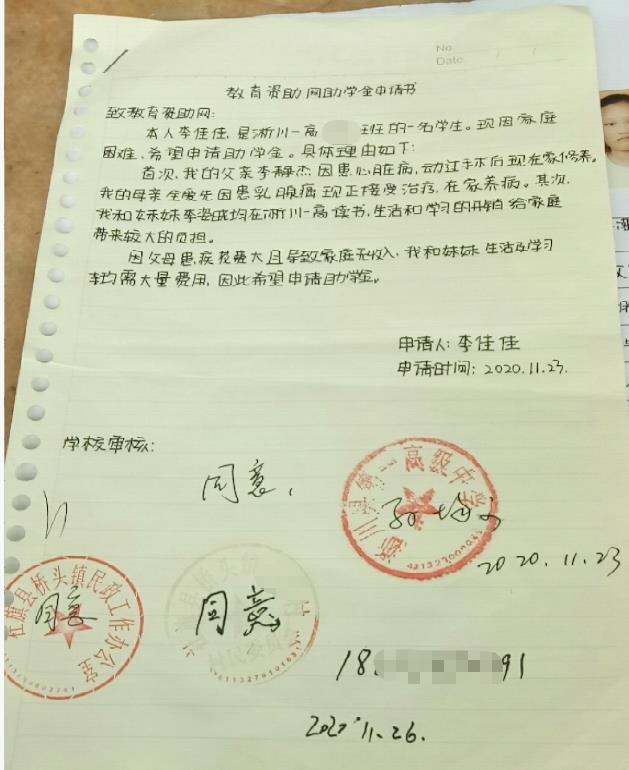 No
Date
教育资助网助学金申请书
致教育资助网:
本人李佳佳,是淅川一高 班的一名学生。现因家庭
困难、希望申请助学金。具体理由如下:
首次,我的父亲李静杰因患心脏病,动过手术后现在家修养。
我的母亲 因患乳腺癌现正接受治疗,在家养病。其次,
我和妹妹李 均在淅川一高读书,生活和学习的开销给家庭
带来较大的负担。
因父母患疾花费大且导致家庭无收入,我和妹妹生活及学习
均需大量费用,因此希望申请助学金。
申请人:李佳佳
申请时间:2020.11.23.
学校审核:
同意,
淅川县第一高级中学
2020.11.23
社旗县桥头镇民政工作办公室
同意
社旗县桥头镇
同意
18 91
2020.11.26.